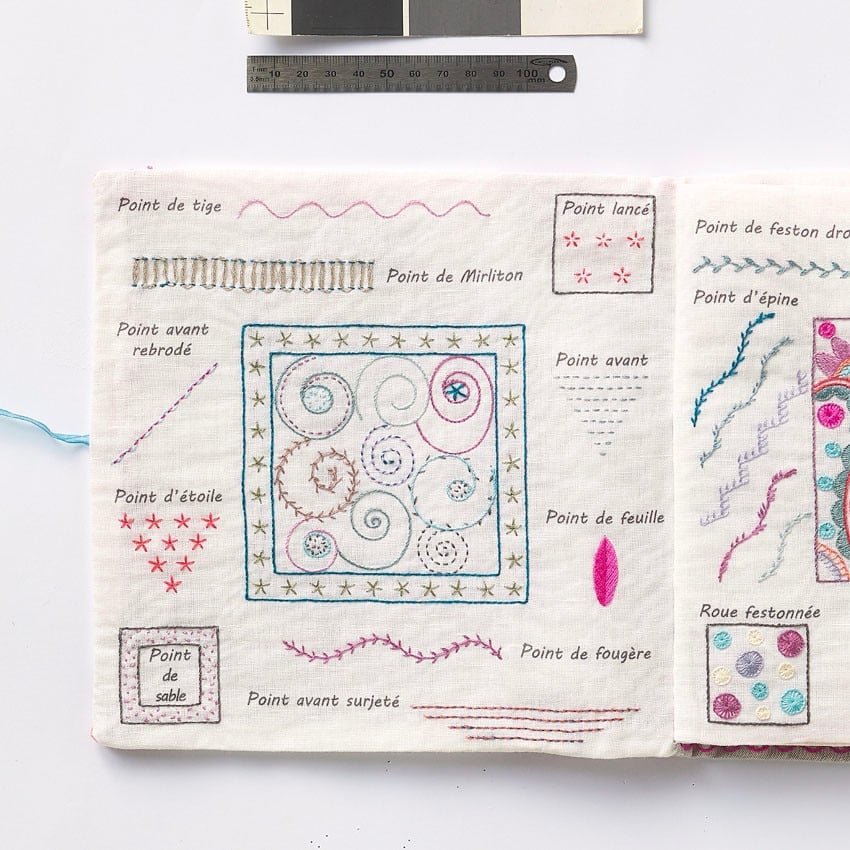 1 mm
0.5mm
10 20 30 40 50 60 70 80 90 100
mm
Point de tige
Point lancé
Point de Mirliton
Point avant
rebrodé
Point avant
Point d'étoile
Point de feuille
Point
de
sable
Point de fougère
Point avant surjeté
Point de feston dro
Point d'épine
Roue festonnée